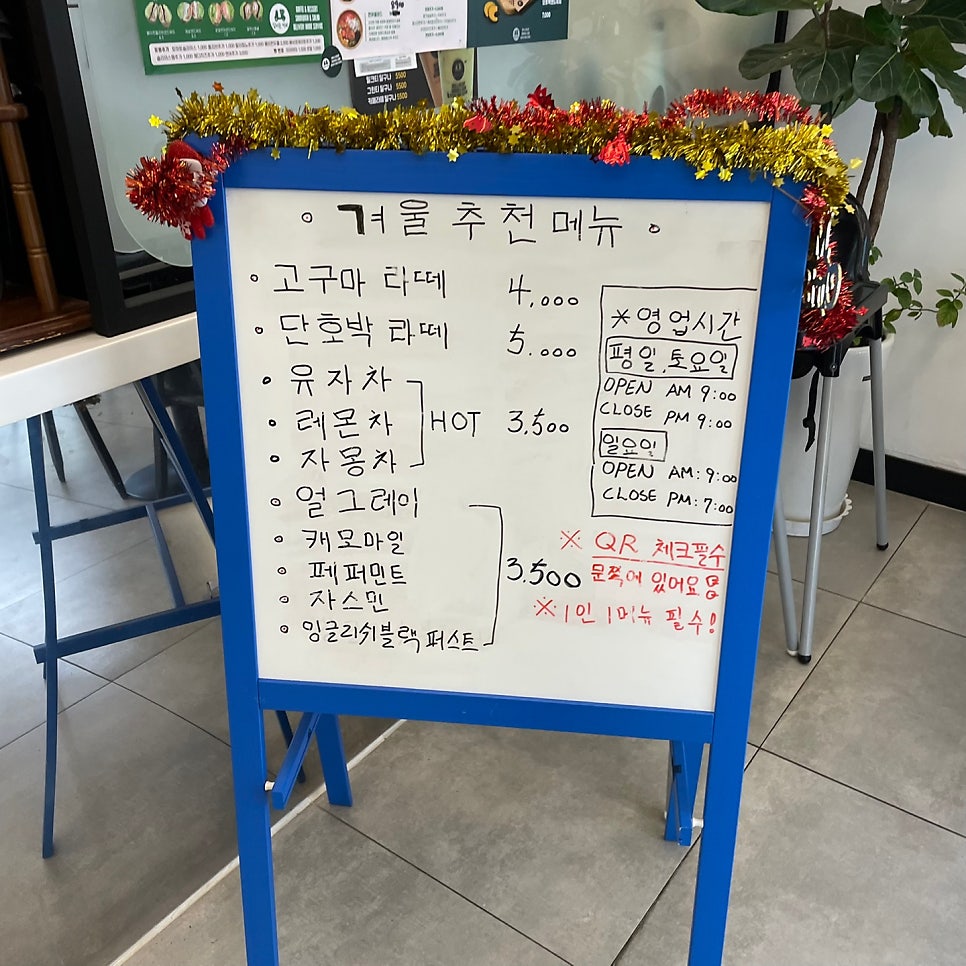 밀크티 달구나 5500
그린티 달구나 5500
커피라떼 달구나 5500
7,000
◦ 겨울 추천메뉴 ◦
◦ 고구마 라떼 4,000
◦ 단호박 라떼 5.000
◦ 유자차
◦ 레몬차 HOT 3,500
◦ 자몽차
◦ 얼그레이
◦ 캐모마일
◦ 페퍼민트 3.500
◦ 자스민
◦ 잉글리쉬블랙퍼스트
※영업시간
평일.토요일
OPEN AM 9:00
CLOSE PM 9:00
일요일
OPEN AM:9:00
CLOSE PM:7:00
※ QR 체크필수
문쪽에 있어요
※1인 1메뉴 필수!